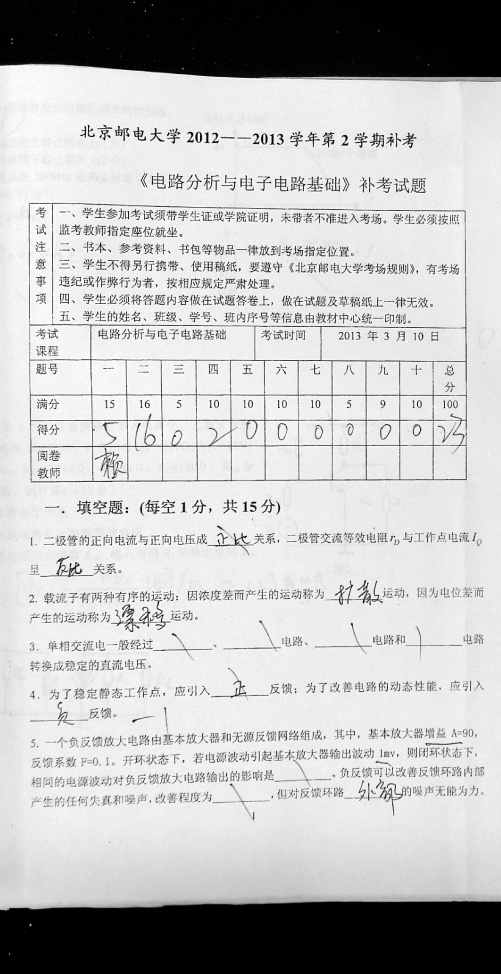 北京邮电大学 2012——2013 学年第 2 学期补考
《电路分析与电子电路基础》补考试题
考试注意事项
一、学生参加考试须带学生证或学院证明，未带者不准进入考场。学生必须按照
监考教师指定座位就坐。
二、书本、参考资料、书包等物品一律放到考场指定位置。
三、学生不得另行携带、使用稿纸，要遵守《北京邮电大学考场规则》，有考场
违纪或作弊行为者，按相应规定严肃处理。
四、学生必须将答题内容做在试题答卷上，做在试题及草稿纸上一律无效。
五、学生的姓名、班级、学号、班内序号等信息由教材中心统一印制。
考试课程 电路分析与电子电路基础 考试时间 2013 年 3 月 10 日
题号 一 二 三 四 五 六 七 八 九 十 总分
满分 15 16 5 10 10 10 10 5 9 10 100
得分 5 16 0 2 0 0 0 0 0 0 23
阅卷教师
一．填空题：(每空 1 分，共 15 分)
1. 二极管的正向电流与正向电压成 正比 关系，二极管交流等效电阻 rD 与工作点电流 IQ
呈 反比 关系。
2. 载流子有两种有序的运动：因浓度差而产生的运动称为 扩散 运动，因为电位差而
产生的运动称为 漂移 运动。
3. 单相交流电一般经过 、 电路、 电路和 电路
转换成稳定的直流电压。
4. 为了稳定静态工作点，应引入 正 反馈；为了改善电路的动态性能，应引入
负 反馈。 —1
5. 一个负反馈放大电路由基本放大器和无源反馈网络组成，其中，基本放大器增益 A=90，
反馈系数 F=0.1。开环状态下，若电源波动引起基本放大器输出波动 1mv，则闭环状态下，
相同的电源波动对负反馈放大电路输出的影响是 ，负反馈可以改善反馈环路内部
产生的任何失真和噪声，改善程度为 ，但对反馈环路 外部 的噪声无能为力。
1